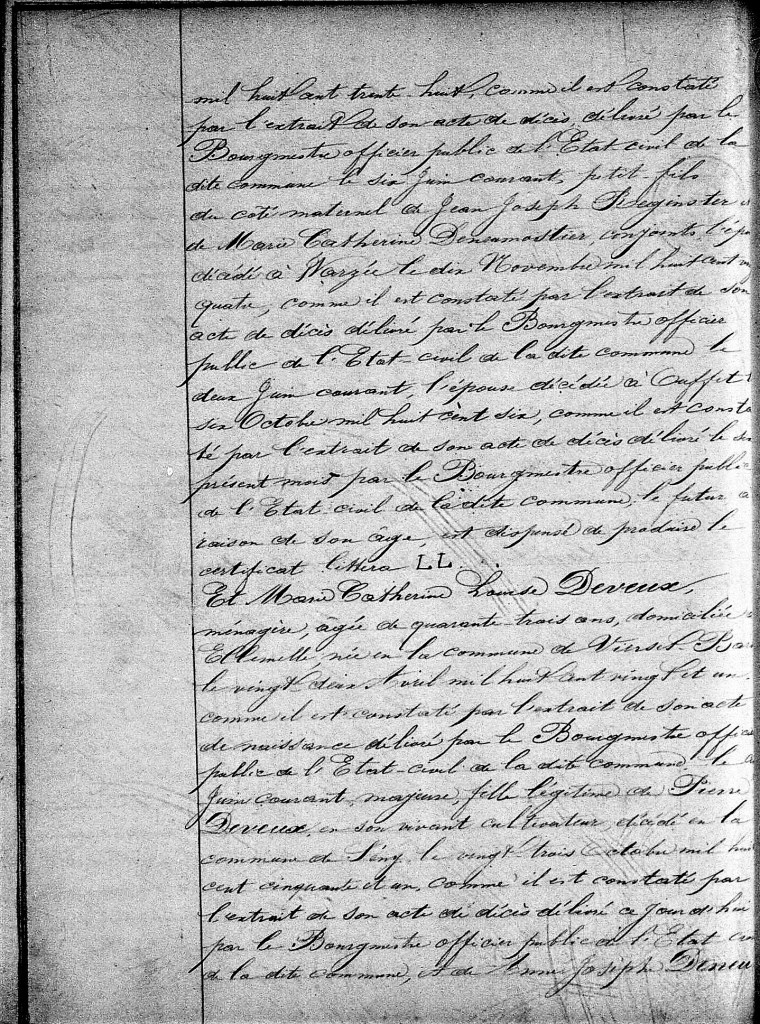 mil huit cent trente-huit, comme il est constaté
par l'extrait de son acte de décès, délivré par le
Bourgmestre officier public de l'Etat civil de la
dite commune le six Juin courant, petit-fils
du coté maternel de Jean Joseph Reginster
de Marie Catherine Deneumostier, conjoints, l'épou
décédé à Warzée le dix Novembre mil huit cent
quatre, comme il est constaté par l'extrait de son
acte de décès délivré par le Bourgmestre officier
public de l'Etat-civil de la dite commune le
deux Juin courant, l'épouse décédée à Ouffet
six Octobre mil huit cent six, comme il est consta
té par l'extrait de son acte de décès délivré le six
présent mois par le Bourgmestre officier public
de l'Etat civil de la dite commune, le futur a
raison de son âge, est dispensé de produire le
certificat littera LL...
Et Marie Catherine Louise Deveux,
ménagère, âgée de quarante-trois ans, domiciliée
Ellemelle, née en la commune de Vierset-Bar
le vingt-deux Avril mil huit cent vingt et un,
comme il est constaté par l'extrait de son acte
de naissance délivré par le Bourgmestre offic
public de l'Etat-civil de la dite commune le
Juin courant, majeure, fille légitime de Pierre
Deveux, en son vivant cultivateur, décédé en la
commune de Sény le vingt-trois Octobre mil hui
cent cinquante et un, comme il est constaté par
l'extrait de son acte de décès délivré ce jourd'hui
par le Bourgmestre officier public de l'Etat
de la dite commune, et de Anne Joseph